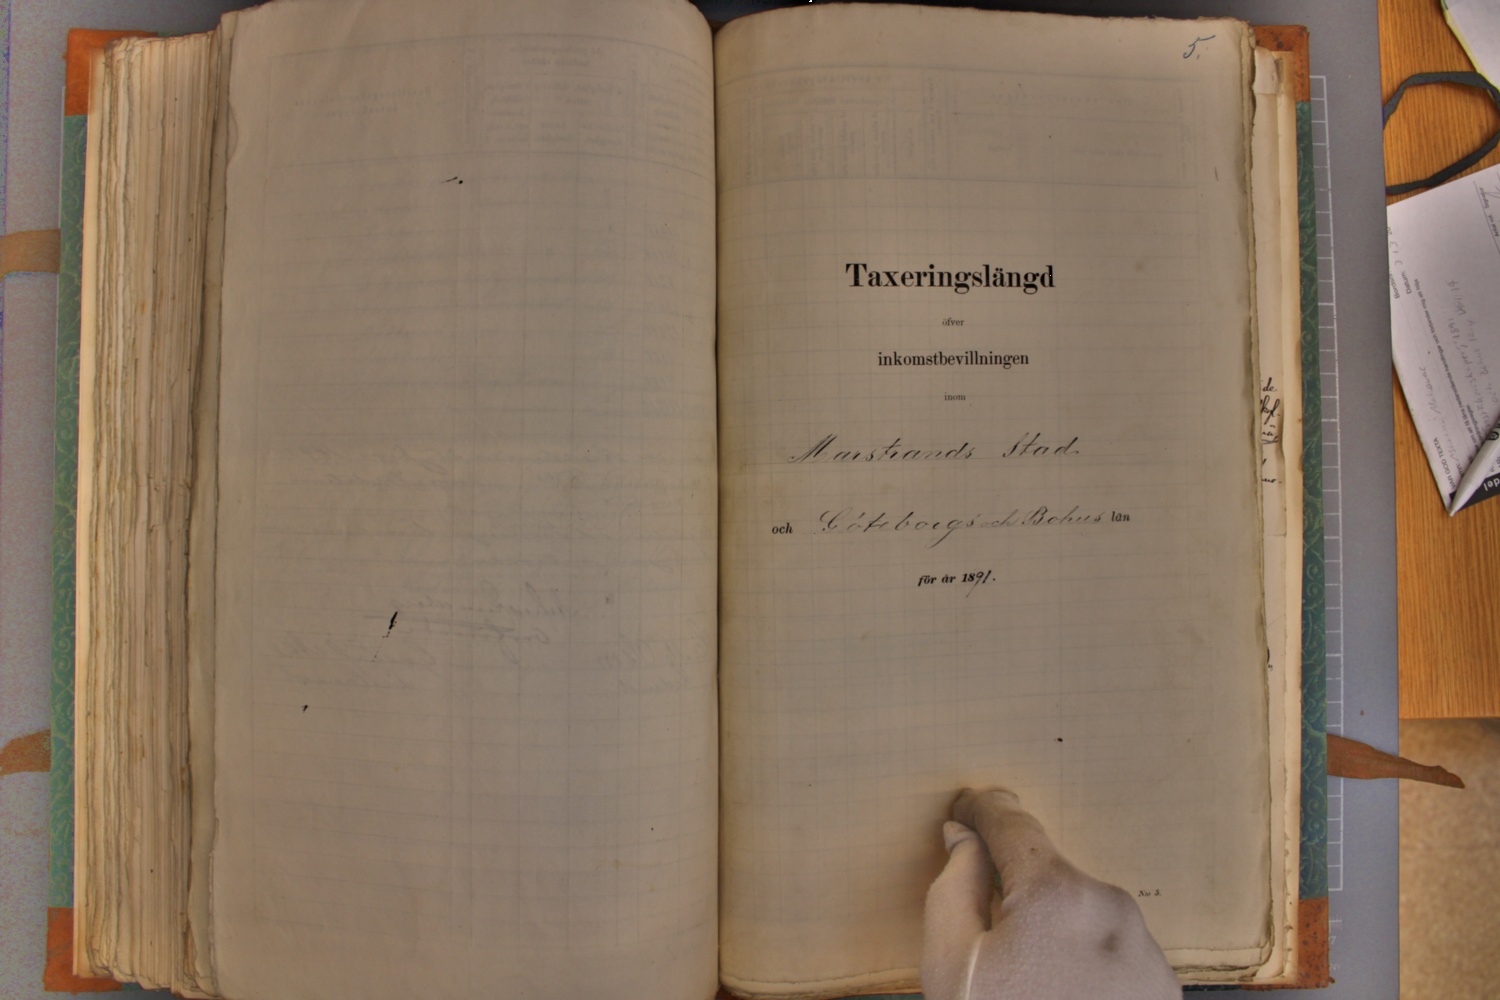 5.
Taxeringslängd
öfver
inkomstbevillningen
inom
Marstrands Stad
och Göteborgs och Bohus län
för år 1891.
N:o 5.